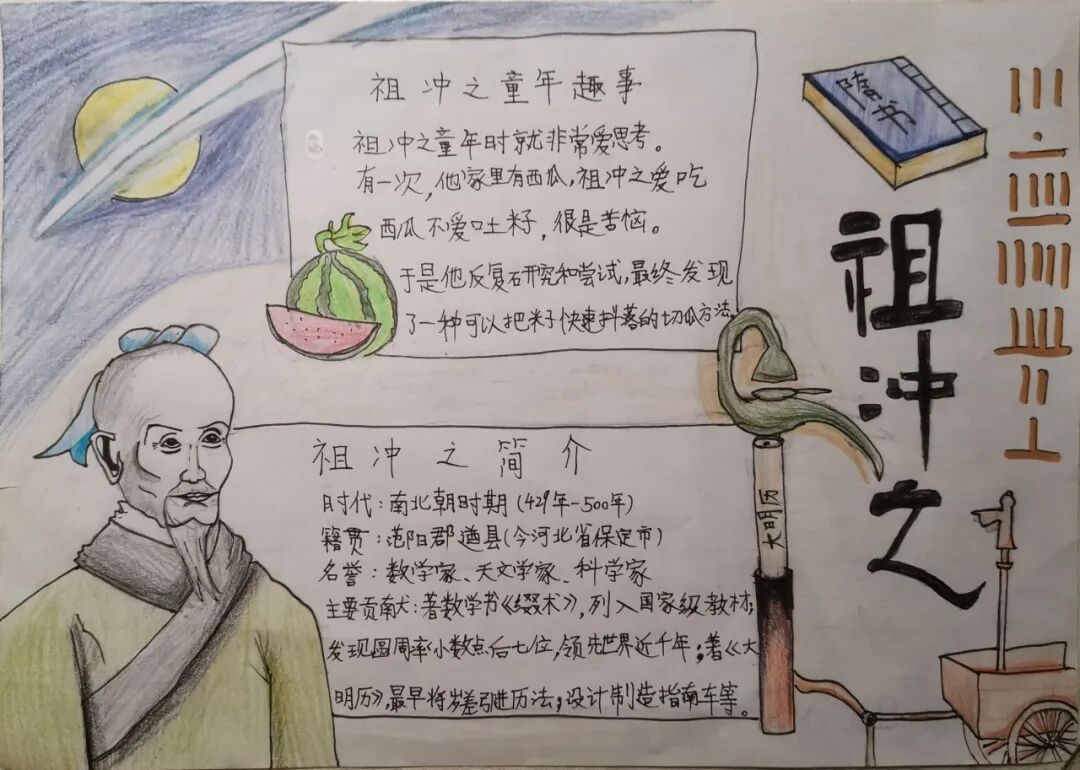 祖冲之童年趣事
祖冲之童年时就非常爱思考。
有一次,他家里有西瓜,祖冲之爱吃
西瓜不爱吐籽,很是苦恼。
于是他反复研究和尝试,最终发现
了一种可以把籽快速抖落的切瓜方法。
祖冲之简介
时代:南北朝时期(429年-500年)
籍贯:范阳郡遒县(今河北省保定市)
名誉:数学家、天文学家、科学家
主要贡献:著数学书《缀术》,列入国家级教材;
发现圆周率小数点后七位,领先世界近千年;著《大
明历》,最早将岁差引进历法;设计制造指南车等。
大明历
隋书
祖冲之